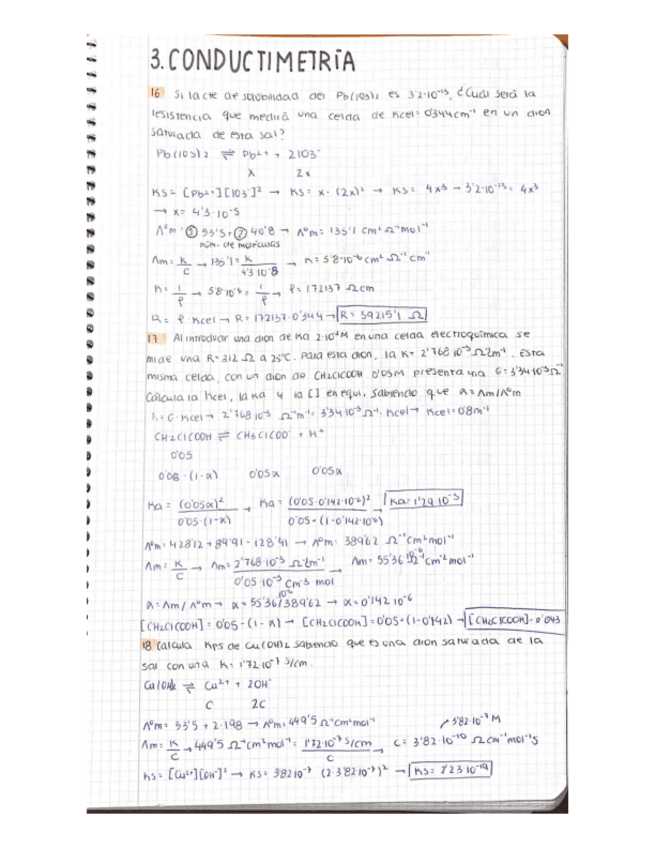 3. CONDUCTIMETRÍA
16 Si la cte de solubilidad del Pb(IO3)2 es 3'2·10⁻¹³, ¿Cuál será la
resistencia que medirá una celda de Kcel = 0'344cm⁻¹ en un dion
saturada de esta sal?
Pb(IO3)2 ⇌ Pb²⁺ + 2IO3⁻
x 2x
KS = [Pb²⁺][IO3⁻]² → KS = x·(2x)² → KS = 4x³ → 3'2·10⁻¹³ = 4x³
→ x = 4'3·10⁻⁵
Λ°m = ① 53'5 + ② 40'8 → Λ°m = 135'1 cm² Ω⁻¹ mol⁻¹
núm. de moléculas
Λm = K/C → 135'1 = K/4'3·10⁻⁸ → K = 5'8·10⁻⁶ cm² Ω⁻¹ cm⁻¹
K = 1/ρ → 5'8·10⁻⁶ = 1/ρ → ρ = 172137 Ω cm
R = ρ Kcel → R = 172137·0'344 → R = 59215'1 Ω
17 Al introducir una dion de KCl 2·10⁻²M en una celda electroquímica se
mide una R = 312 Ω a 25°C. Para esta dion, la K = 2'768·10⁻³ Ω⁻¹m⁻¹. Esta
misma celda, con un dion de CH2ClCOOH 0'05M presenta una G = 3'34·10⁻³Ω⁻¹
Calcula la Kcel, la Ka y la [ ] en equi, sabiendo que α = Λm/Λ°m
K = G·Kcel → 2'768·10⁻³ Ω⁻¹m⁻¹ = 3'34·10⁻³ Ω⁻¹·Kcel → Kcel = 0'8m⁻¹
CH2ClCOOH ⇌ CH2ClCOO⁻ + H⁺
0'05
0'05·(1-α) 0'05α 0'05α
Ka = (0'05α)²/0'05·(1-α) → Ka = (0'05·0'142·10⁻⁶)²/0'05·(1-0'142·10⁻⁶) → Ka = 1'29·10⁻³
Λ°m = 428'12 + 89'91 - 128'41 → Λ°m = 389'62 Ω⁻¹cm²mol⁻¹
Λm = K/C → Λm = 2'768·10⁻³ Ω⁻¹m⁻¹/0'05·10⁻³ cm⁻³ mol → Λm = 55'36·10⁻⁶ Ω⁻¹cm²mol⁻¹
α = Λm/Λ°m → α = 55'36·10⁻⁶/389'62 → α = 0'142·10⁻⁶
[CH2ClCOOH] = 0'05·(1-α) → [CH2ClCOOH] = 0'05·(1-0'142) → [CH2ClCOOH] = 0'043
18 Calcula Kps de Cu(OH)2 sabiendo que es una dion saturada de la
sal con una K = 1'72·10⁻⁷ S/cm.
Cu(OH)2 ⇌ Cu²⁺ + 2OH⁻
C 2C
Λ°m = 53'5 + 2·198 → Λ°m = 449'5 Ω⁻¹cm²mol⁻¹ 3'82·10⁻⁷ M
Λm = K/C → 449'5 Ω⁻¹cm²mol⁻¹ = 1'72·10⁻⁷ S/cm/C C = 3'82·10⁻¹⁰ Ωcm⁻³mol⁻¹S
KS = [Cu²⁺][OH⁻]² → KS = 3'82·10⁻⁷ (2·3'82·10⁻⁷)² → KS = 2'23·10⁻¹⁹